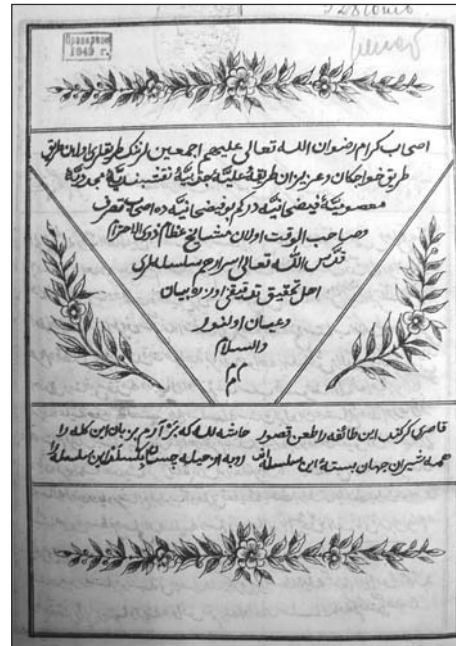 Проверено
1949 г.
اصحاب كرام رضوان الله تعالى عليهم اجمعين لرينك طريقلرى اولان طريق
طريق خواجكان و عزيزان طريقهٔ عليّهٔ نقشبنديّهٔ مجدديّهٔ
معصوميّهٔ فيضانيّه دركم بو فيضانيّه ده اصحاب تصرف
و صاحب الوقت اولان مشايخ عظام ذوى الاحترام
قدّس الله تعالى اسرارهم سلسله لرى
اهل تحقيق تدقيقى اوزره بيان
و عيان اولنور
والسلام
م م
قاصرى كركند اين طائفه را طعن قصور حاشه لله كه بر آرم بزبان اين كله را
همه شيران جهان بستهٔ اين سلسله اند روبه از حيله چسان بكسلد اين سلسله را